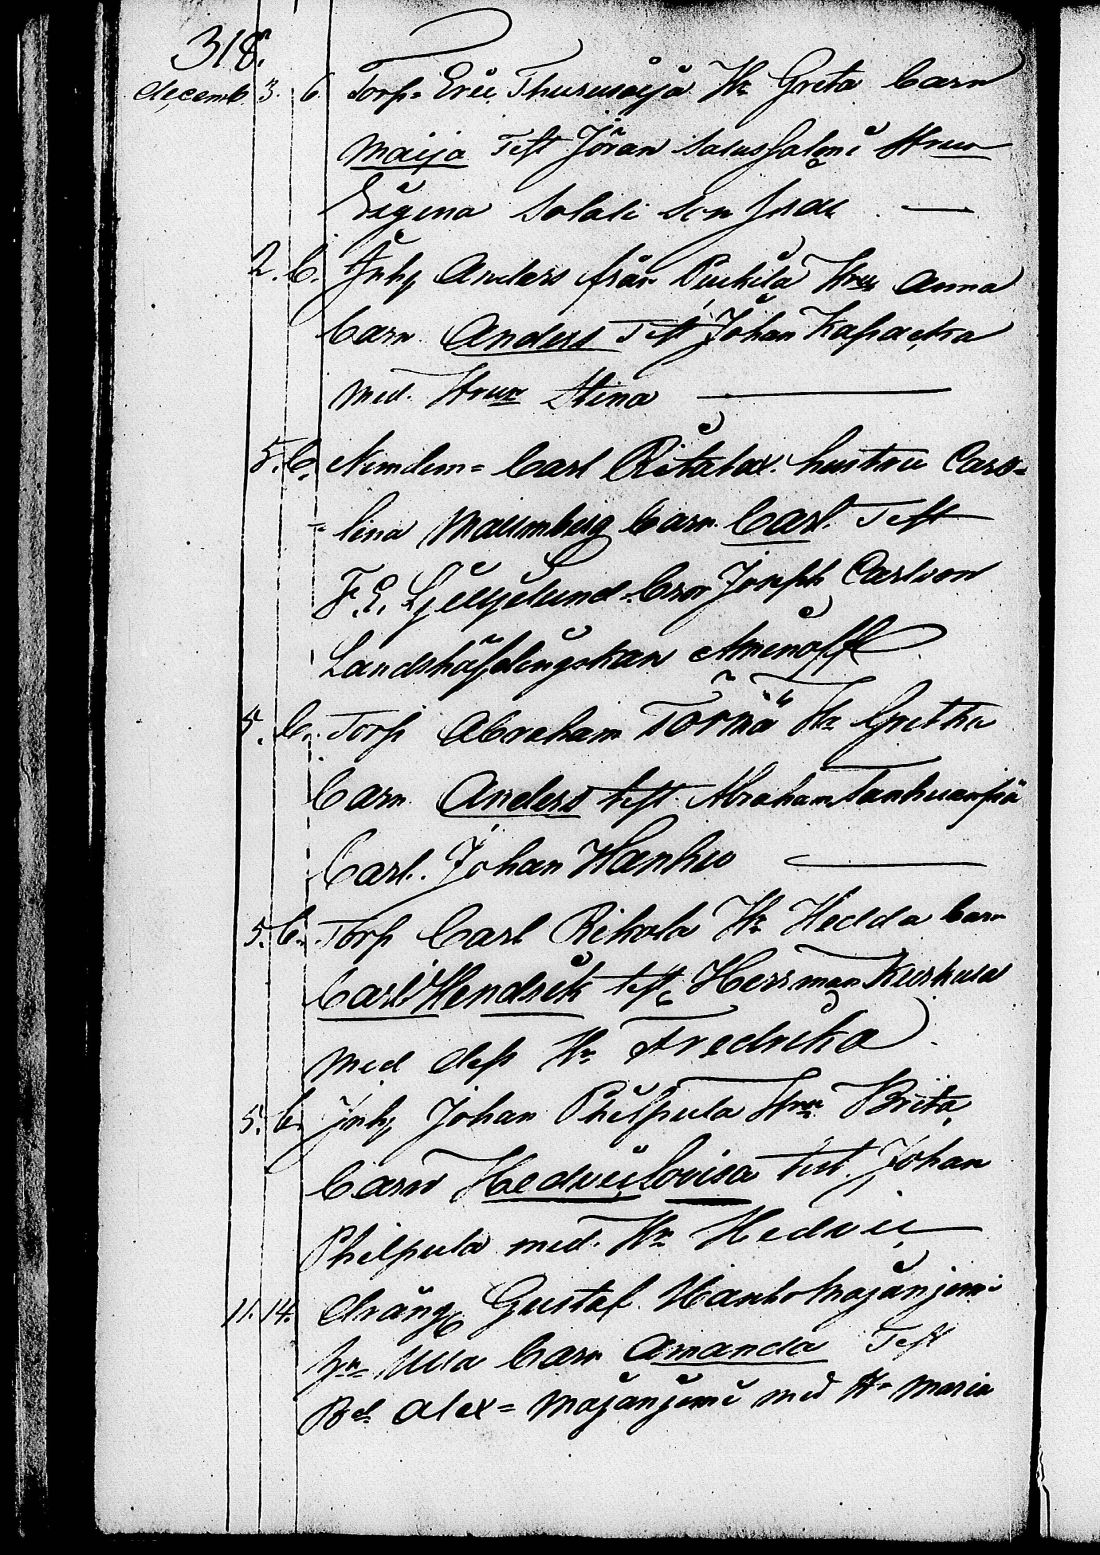 318.
decemb. 3. 6. Torp. Eric Thurusoja Hr Greta Barn
Maija Test Jöran Salussalmi Hrun
Regina Solali Son Isac
2. 6. Inhy Anders från Puckila Hru Anna
Barn Anders Test Johan Kapacka
med Hrun Stina
5. 6. Nimdem= Carl Ritalax hustru Caro=
=lina Malmberg Barn Carl. Test
F. E. Joseph Carlson
Landshöfdingskan Amenoff
5. 6. Torp Abraham Törmä Hr Gretha
Barn Anders test Abraham Tanhuanpää
Carl Johan Hanhu
5. 6. Torp Carl Rekola Hr Hedda Barn
Carl Hendrik test Herrman Kurkula
med dess Hr Fredrika
5. 6. Inhy Johan Philpula Hru Brita
Barn Hedvic Lovisa test Johan
Philpula med Hr Hedvic
11. 14. dräng Gustaf Majanjemi
Hr Ulla Barn Amanda Test
Bd Alex= Majanjemi med Hr Maria